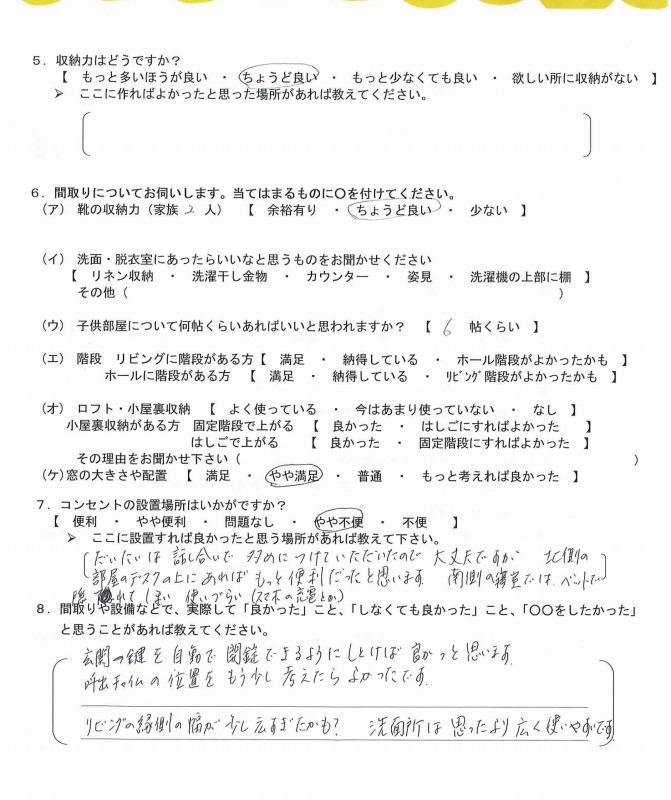 ５．収納力はどうですか？
【　もっと多いほうが良い　・　ちょうど良い　・　もっと少なくても良い　・　欲しい所に収納がない　】
➢　ここに作ればよかったと思った場所があれば教えてください。
６．間取りについてお伺いします。当てはまるものに〇を付けてください。
（ア）　靴の収納力（家族　2　人）　【　余裕有り　・　ちょうど良い　・　少ない　】
（イ）　洗面・脱衣室にあったらいいなと思うものをお聞かせください
【　リネン収納　・　洗濯干し金物　・　カウンター　・　姿見　・　洗濯機の上部に棚　】
その他（　　　）
（ウ）　子供部屋について何帖くらいあればいいと思われますか？　【　6　帖くらい　】
（エ）　階段　リビングに階段がある方【　満足　・　納得している　・　ホール階段がよかったかも　】
ホールに階段がある方　【　満足　・　納得している　・　ﾘﾋﾞﾝｸﾞ階段がよかったかも　】
（オ）　ロフト・小屋裏収納　【　よく使っている　・　今はあまり使っていない　・　なし　】
小屋裏収納がある方　固定階段で上がる　【　良かった　・　はしごにすればよかった　】
はしごで上がる　【　良かった　・　固定階段にすればよかった　】
その理由をお聞かせ下さい（　　　）
（ケ）窓の大きさや配置　【　満足　・　やや満足　・　普通　・　もっと考えれば良かった　】
７．コンセントの設置場所はいかがですか？
【　便利　・　やや便利　・　問題なし　・　やや不便　・　不便　】
➢　ここに設置すれば良かったと思う場所があれば教えて下さい。
だいたいは 話し合いで 多めにつけていただいたので 大丈夫ですが 北側の
部屋のデスクの上にあれば もっと便利だったと思います 南側の寝室では、ベットで
隠れてしまい 使いづらい(スマホの充電とか)
８．間取りや設備などで、実際して「良かった」こと、「しなくても良かった」こと、「〇〇をしたかった」
と思うことがあれば教えてください。
玄関の鍵を自動で閉錠できるようにしとけば 良かっと思います.
呼出チャイムの位置を もう少し 考えたら よかったです.
リビングの縁側の幅が少し広すぎたかも?　洗面所は 思ったより 広く使いやすいです